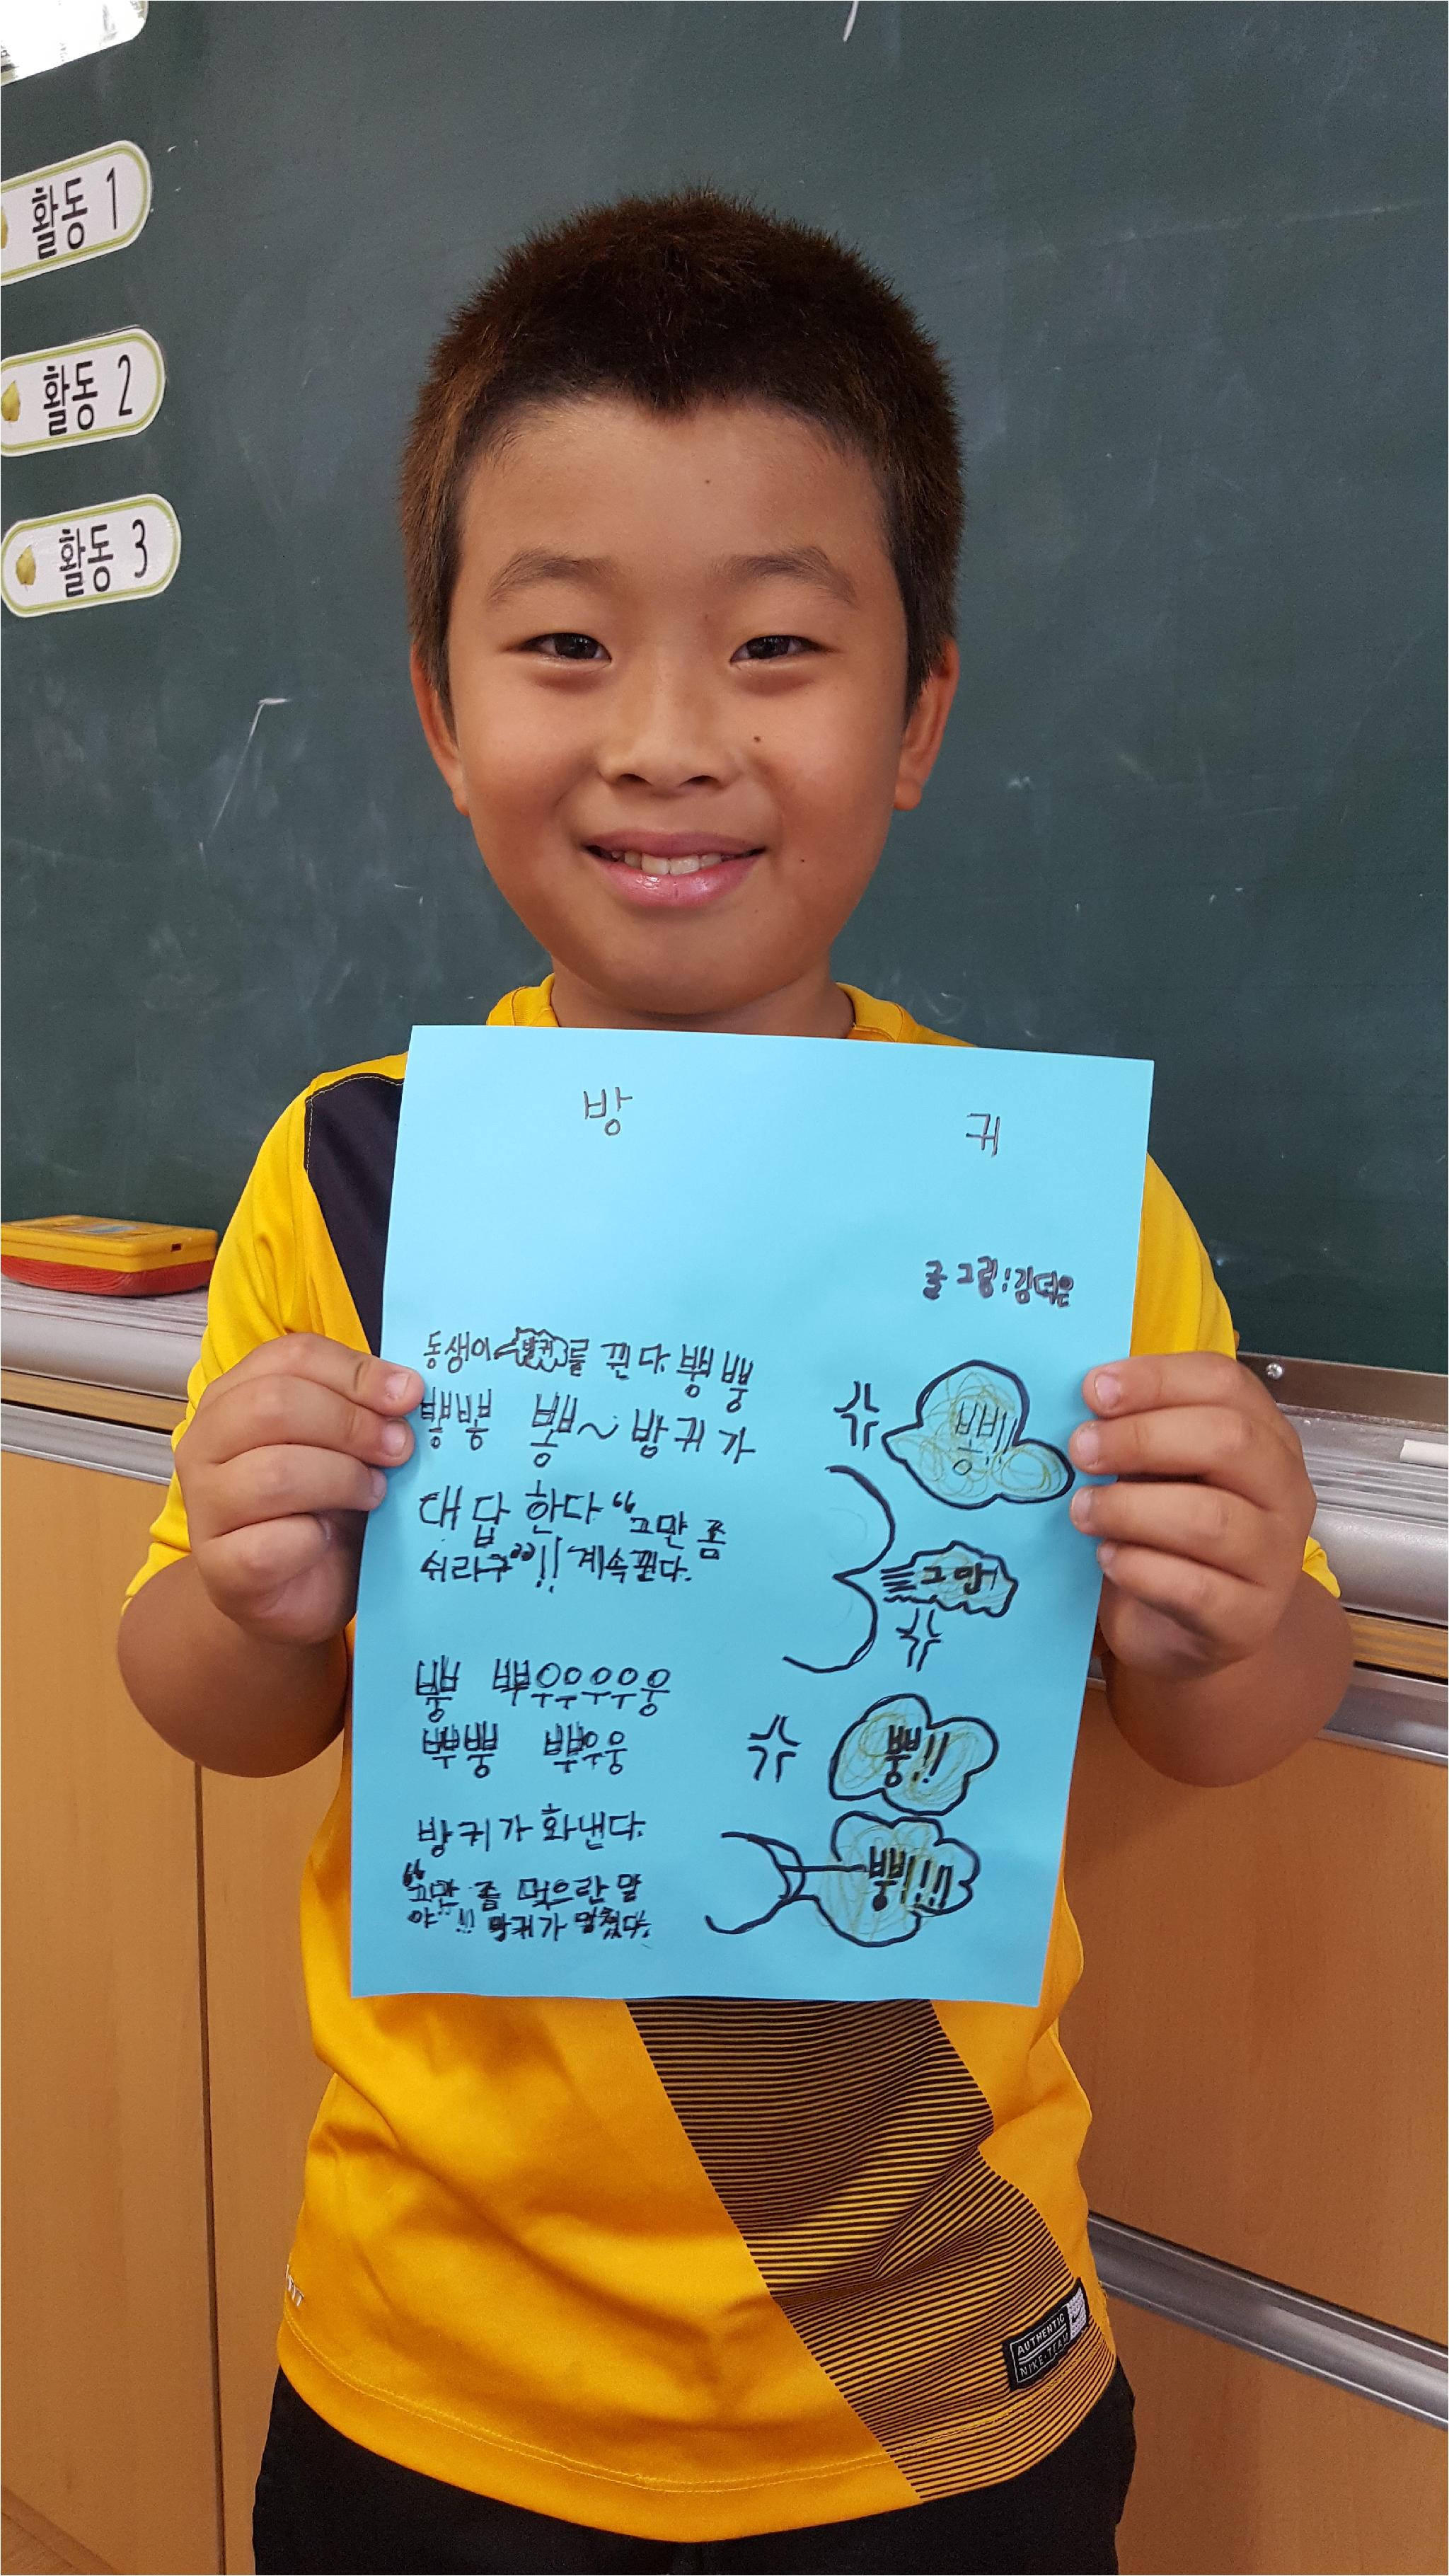 활동 1
활동 2
활동 3
방 귀
글 그림 : 김덕은
동생이 방귀를 뀐다 뿡뿡
뿡뿡 뽕~ 방귀가
대답한다 "그만 좀
쉬라구"!! 계속뀐다.
뿡 뿌우우우우웅
뿌뿡 뿌우웅
방귀가 화낸다.
"그만 좀 먹으란 말
야"!! 방귀가 멈췄다.
뽕!!
그만!
뿡!!
뿡!!!
AUTHENTIC
NIKE TEAM